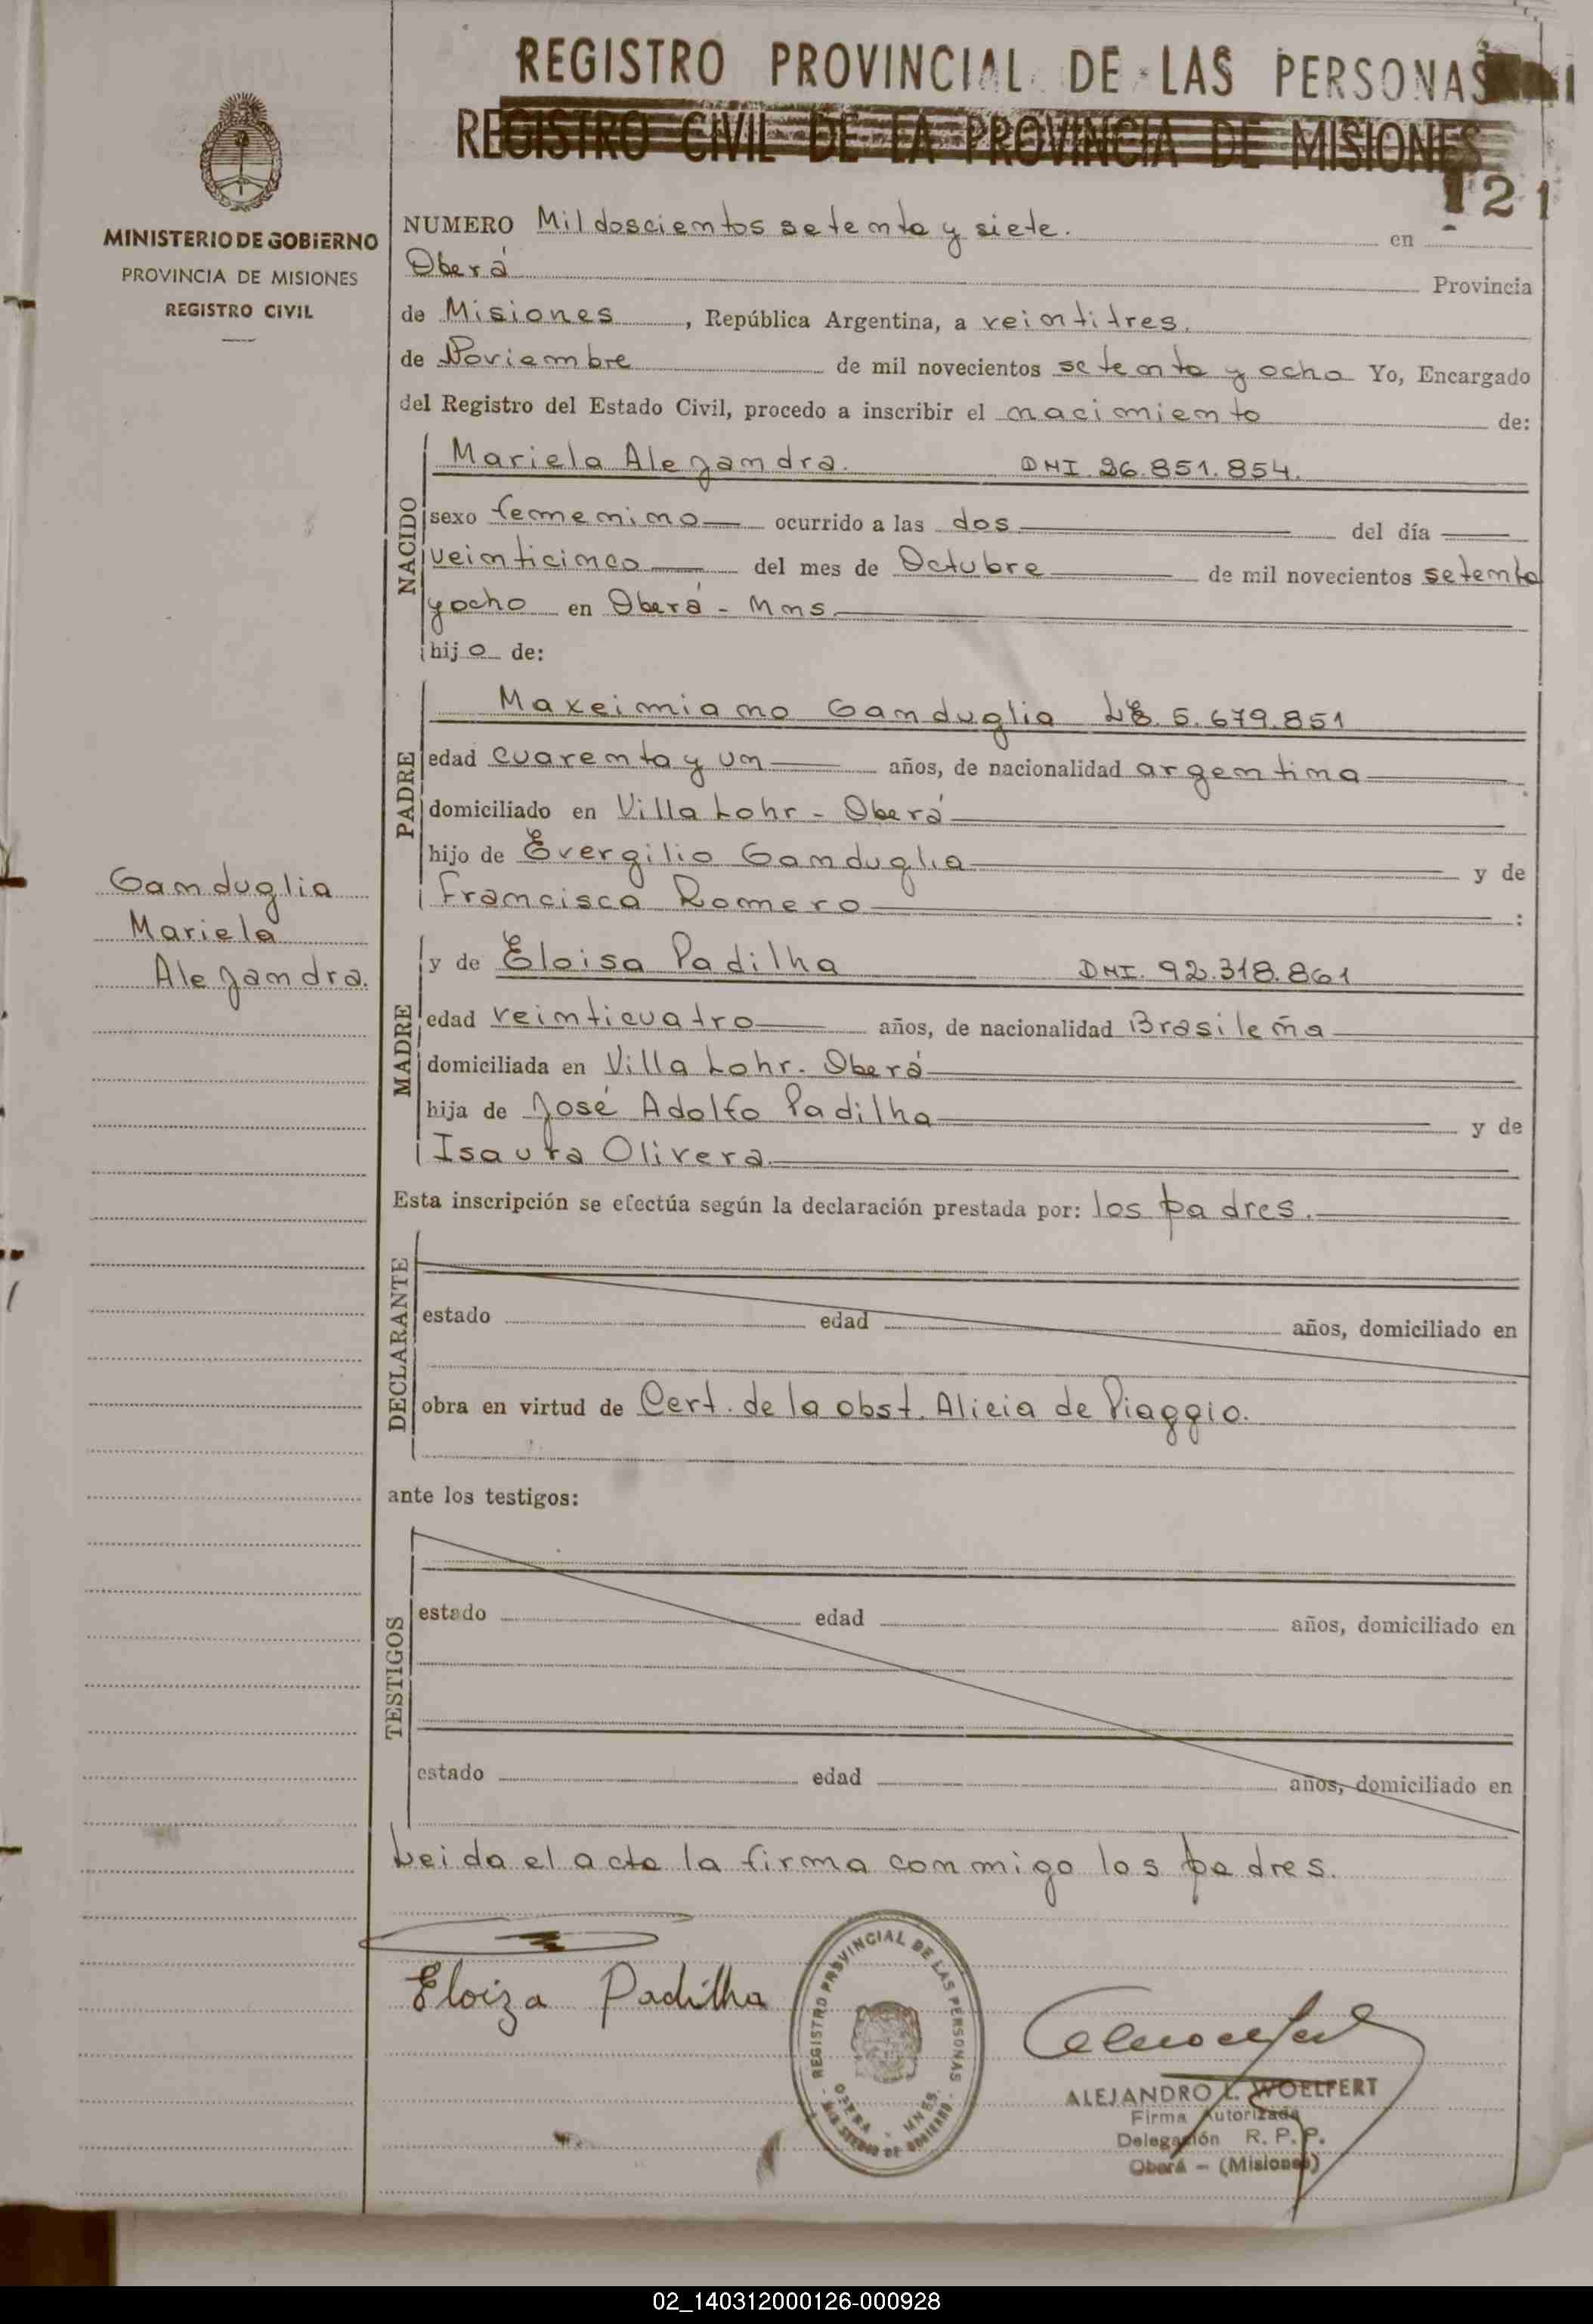 REGISTRO PROVINCIAL DE LAS PERSONAS
REGISTRO CIVIL DE LA PROVINCIA DE MISIONES
121
MINISTERIO DE GOBIERNO
PROVINCIA DE MISIONES
REGISTRO CIVIL
NUMERO Mil doscientos setenta y siete. en
Oberá Provincia
de Misiones, República Argentina, a veintitres.
de Noviembre de mil novecientos setenta y ocho Yo, Encargado
del Registro del Estado Civil, procedo a inscribir el nacimiento de:
NACIDO
Mariela Alejandra. DNI. 26.851.854.
sexo femenino ocurrido a las dos del día
veinticinco del mes de Octubre de mil novecientos setenta
y ocho en Oberá - Mns
hijo de:
PADRE
Maxeimiano Ganduglia LE. 5.679.851
edad cuarenta y un años, de nacionalidad argentina
domiciliado en Villa Lohr - Oberá
hijo de Evergilio Ganduglia y de
Francisca Romero :
Ganduglia
Mariela
Alejandra.
MADRE
y de Eloisa Padilha DNI. 92.318.861
edad veinticuatro años, de nacionalidad Brasileña
domiciliada en Villa Lohr. Oberá
hija de José Adolfo Padilha y de
Isaura Olivera.
Esta inscripción se efectúa según la declaración prestada por: los padres.
DECLARANTE
estado edad años, domiciliado en
obra en virtud de Cert. de la obst. Alicia de Piaggio.
ante los testigos:
TESTIGOS
estado edad años, domiciliado en
estado edad años, domiciliado en
Leida el acta la firma conmigo los padres.
Eloiza Padilha
REGISTRO PROVINCIAL DE LAS PERSONAS
OBERA - MNES.
MINISTERIO DE GOBIERNO
ALEJANDRO L. WOELFERT
Firma Autorizada
Delegación R. P. P.
Oberá - (Misiones)
02_140312000126-000928